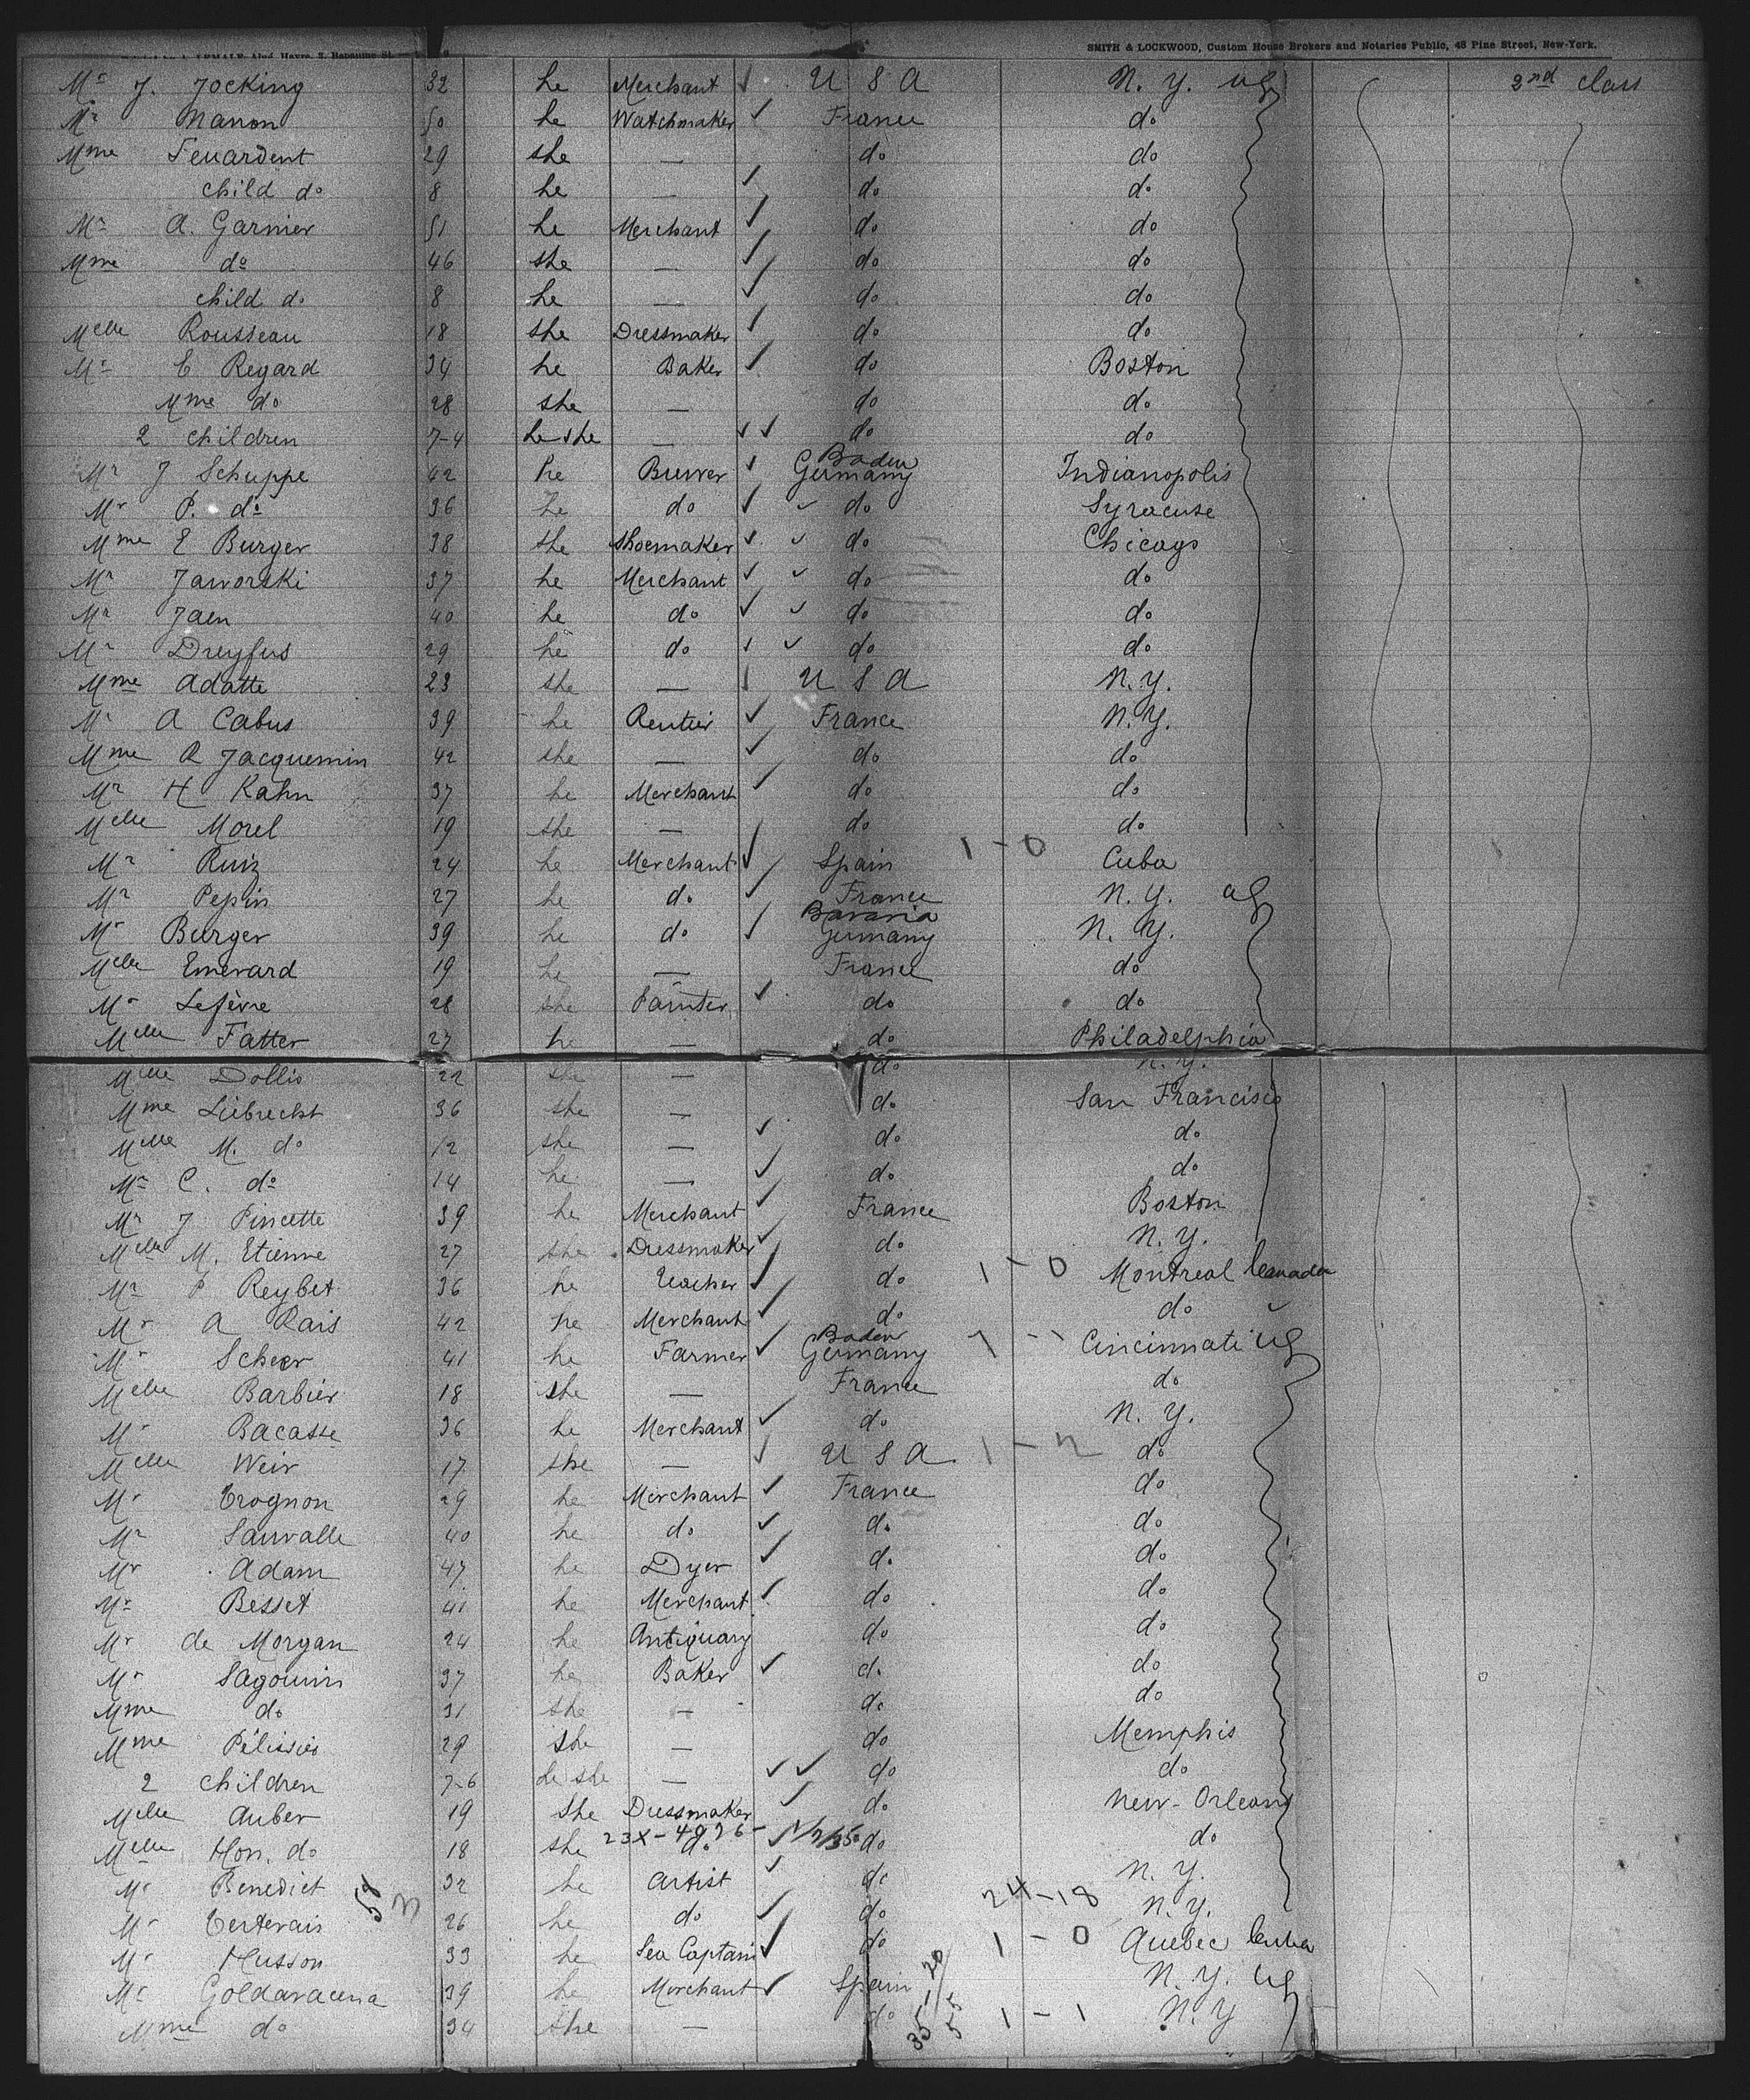 SMITH & LOCKWOOD, Custom House Brokers and Notaries Public, 48 Pine Street, New-York.
Mr J. Jocking 32 he Merchant ✓ U S A N. Y. 2nd class
Mr Manon 50 he Watchmaker ✓ France do
Mme Feuardent 29 she — do do
child do 8 he — ✓ do do
Mr A. Garnier 51 he Merchant ✓ do do
Mme do 46 she — ✓ do do
child do 8 he — ✓ do do
Melle Rousseau 18 she Dressmaker ✓ do do
Mr E Regard 34 he Baker ✓ do Boston
Mme do 28 she — do do
2 children 7-4 he she — ✓ ✓ do do
Mr J Schuppe 42 he Brewer ✓ Baden Germany Indianopolis
Mr P. do 36 he do ✓ ✓ do Syracuse
Mme E Burger 38 she shoemaker ✓ ✓ do Chicago
Mr Jaworski 37 he Merchant ✓ ✓ do do
Mr Jaen 40 he do ✓ ✓ do do
Mr Dreyfus 29 he do ✓ ✓ do do
Mme Adatte 23 she — U S A N. Y.
Mr A Cabus 39 he Rentier ✓ France N. Y.
Mme R Jacquemin 42 she — ✓ do do
Mr H Kahn 37 he Merchant ✓ do do
Melle Morel 19 she — do do
Mr Ruiz 24 he Merchant ✓ Spain 1 - 0 Cuba
Mr Pepin 27 he do ✓ France N. Y.
Mr Burger 39 he do ✓ Bavaria Germany N. Y.
Melle Emerard 19 he — France do
Mr Lefèvre 28 she Painter ✓ do do
Melle Fatter 27 he — do Philadelphia
Melle Dollis 22 she — do N. Y.
Mme Liebrecht 36 she — do San Francisco
Melle M. do 12 she — ✓ do do
Mr C. do 14 he — ✓ do do
Mr J Pincette 39 he Merchant ✓ France Boston
Melle M. Etienne 27 she Dressmaker ✓ do N. Y.
Mr P Reybet 36 he Teacher ✓ do 1 - 0 Montreal Canada
Mr A Rais 42 he Merchant ✓ do do
Mr Scheer 41 he Farmer ✓ Baden Germany Cincinnati
Melle Barbier 18 she — France do
Mr Bacasse 36 he Merchant ✓ do N. Y.
Melle Weir 17 she — ✓ U S A do
Mr Trognon 29 he Merchant ✓ France do
Mr Sauvalle 40 he do ✓ do do
Mr Adam 47 he Dyer ✓ do do
Mr Besset 41 he Merchant ✓ do do
Mr de Morgan 24 he Antiquary do do
Mr Sagouin 37 he Baker ✓ do do
Mme do 31 she — do do
Mme Pélissier 29 she — do Memphis
2 children 7-6 he she — ✓ ✓ do do
Melle Auber 19 she Dressmaker ✓ do New-Orleans
Melle Hon. do 18 she do ✓ do do
Mr Benedict 32 he artist ✓ do N. Y.
58
Mr Tertevais 26 he do ✓ do 24-18 N. Y.
Mr Husson 33 he Sea Captain ✓ do 1 - 0 Quebec
Mr Goldaracena 39 he Merchant ✓ Spain N. Y.
Mme do 34 she — do 1 - 1 N. Y